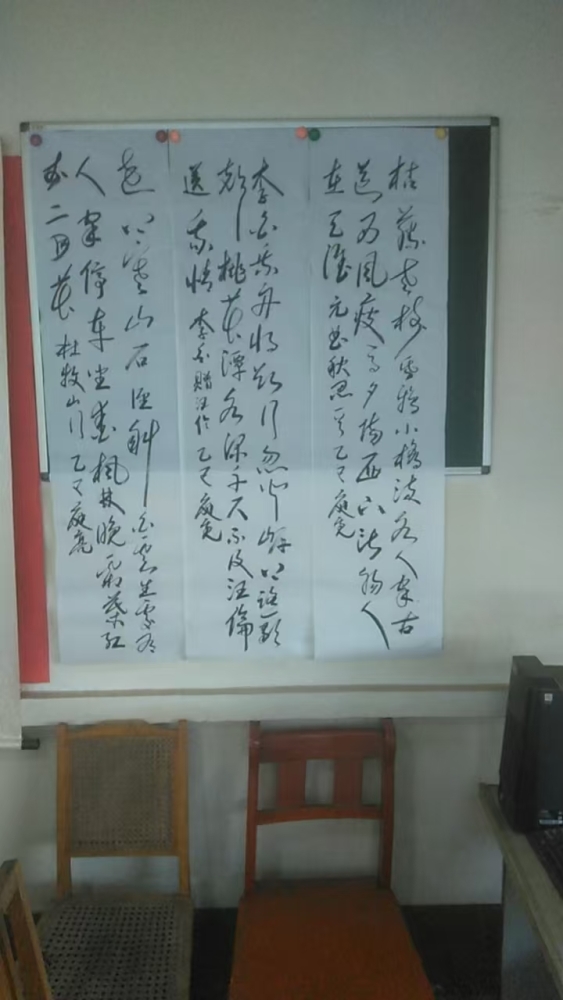 枯藤老树昏鸦小桥流水人家古
道西风瘦马夕阳西下断肠人
在天涯 元曲秋思一首 乙巳 庭亮
李白乘舟将欲行忽闻岸上踏歌
声桃花潭水深千尺不及汪倫
送我情 李白赠汪伦 乙巳 庭亮
远上寒山石径斜白云生处有
人家停车坐爱枫林晚霜葉红
于二月花 杜牧山行 乙巳 庭亮